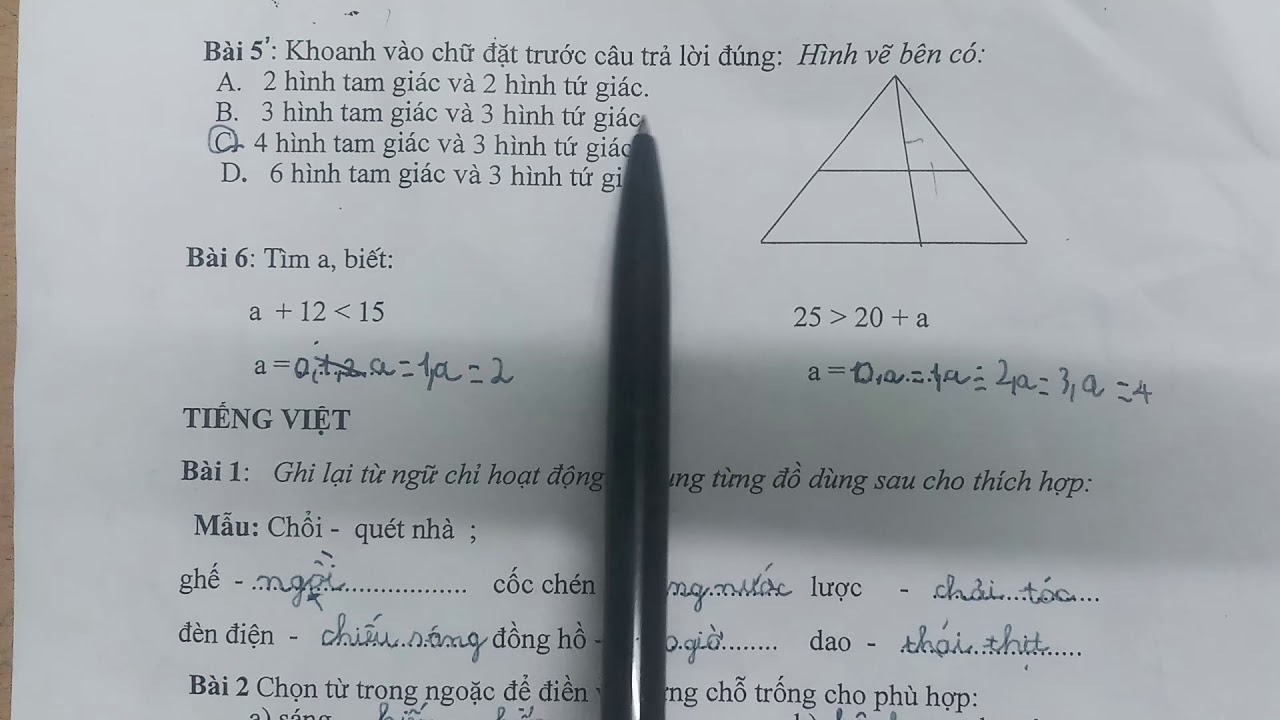 Bài 5': Khoanh vào chữ đặt trước câu trả lời đúng: Hình vẽ bên có:
A. 2 hình tam giác và 2 hình tứ giác.
B. 3 hình tam giác và 3 hình tứ giác
C. 4 hình tam giác và 3 hình tứ giác
D. 6 hình tam giác và 3 hình tứ gi
Bài 6: Tìm a, biết:
a + 12 < 15 25 > 20 + a
a = 0, 1, 2 a = 1, a = 2 a = 0, a = 1, a = 2, a = 3, a = 4
TIẾNG VIỆT
Bài 1: Ghi lại từ ngữ chỉ hoạt động ng từng đồ dùng sau cho thích hợp:
Mẫu: Chổi - quét nhà ;
ghế - ngồi cốc chén ng nước lược - chải tóc
đèn điện - chiếu sáng đồng hồ - giờ dao - thái thịt
Bài 2 Chọn từ trong ngoặc để điền ng chỗ trống cho phù hợp:
a) sáng